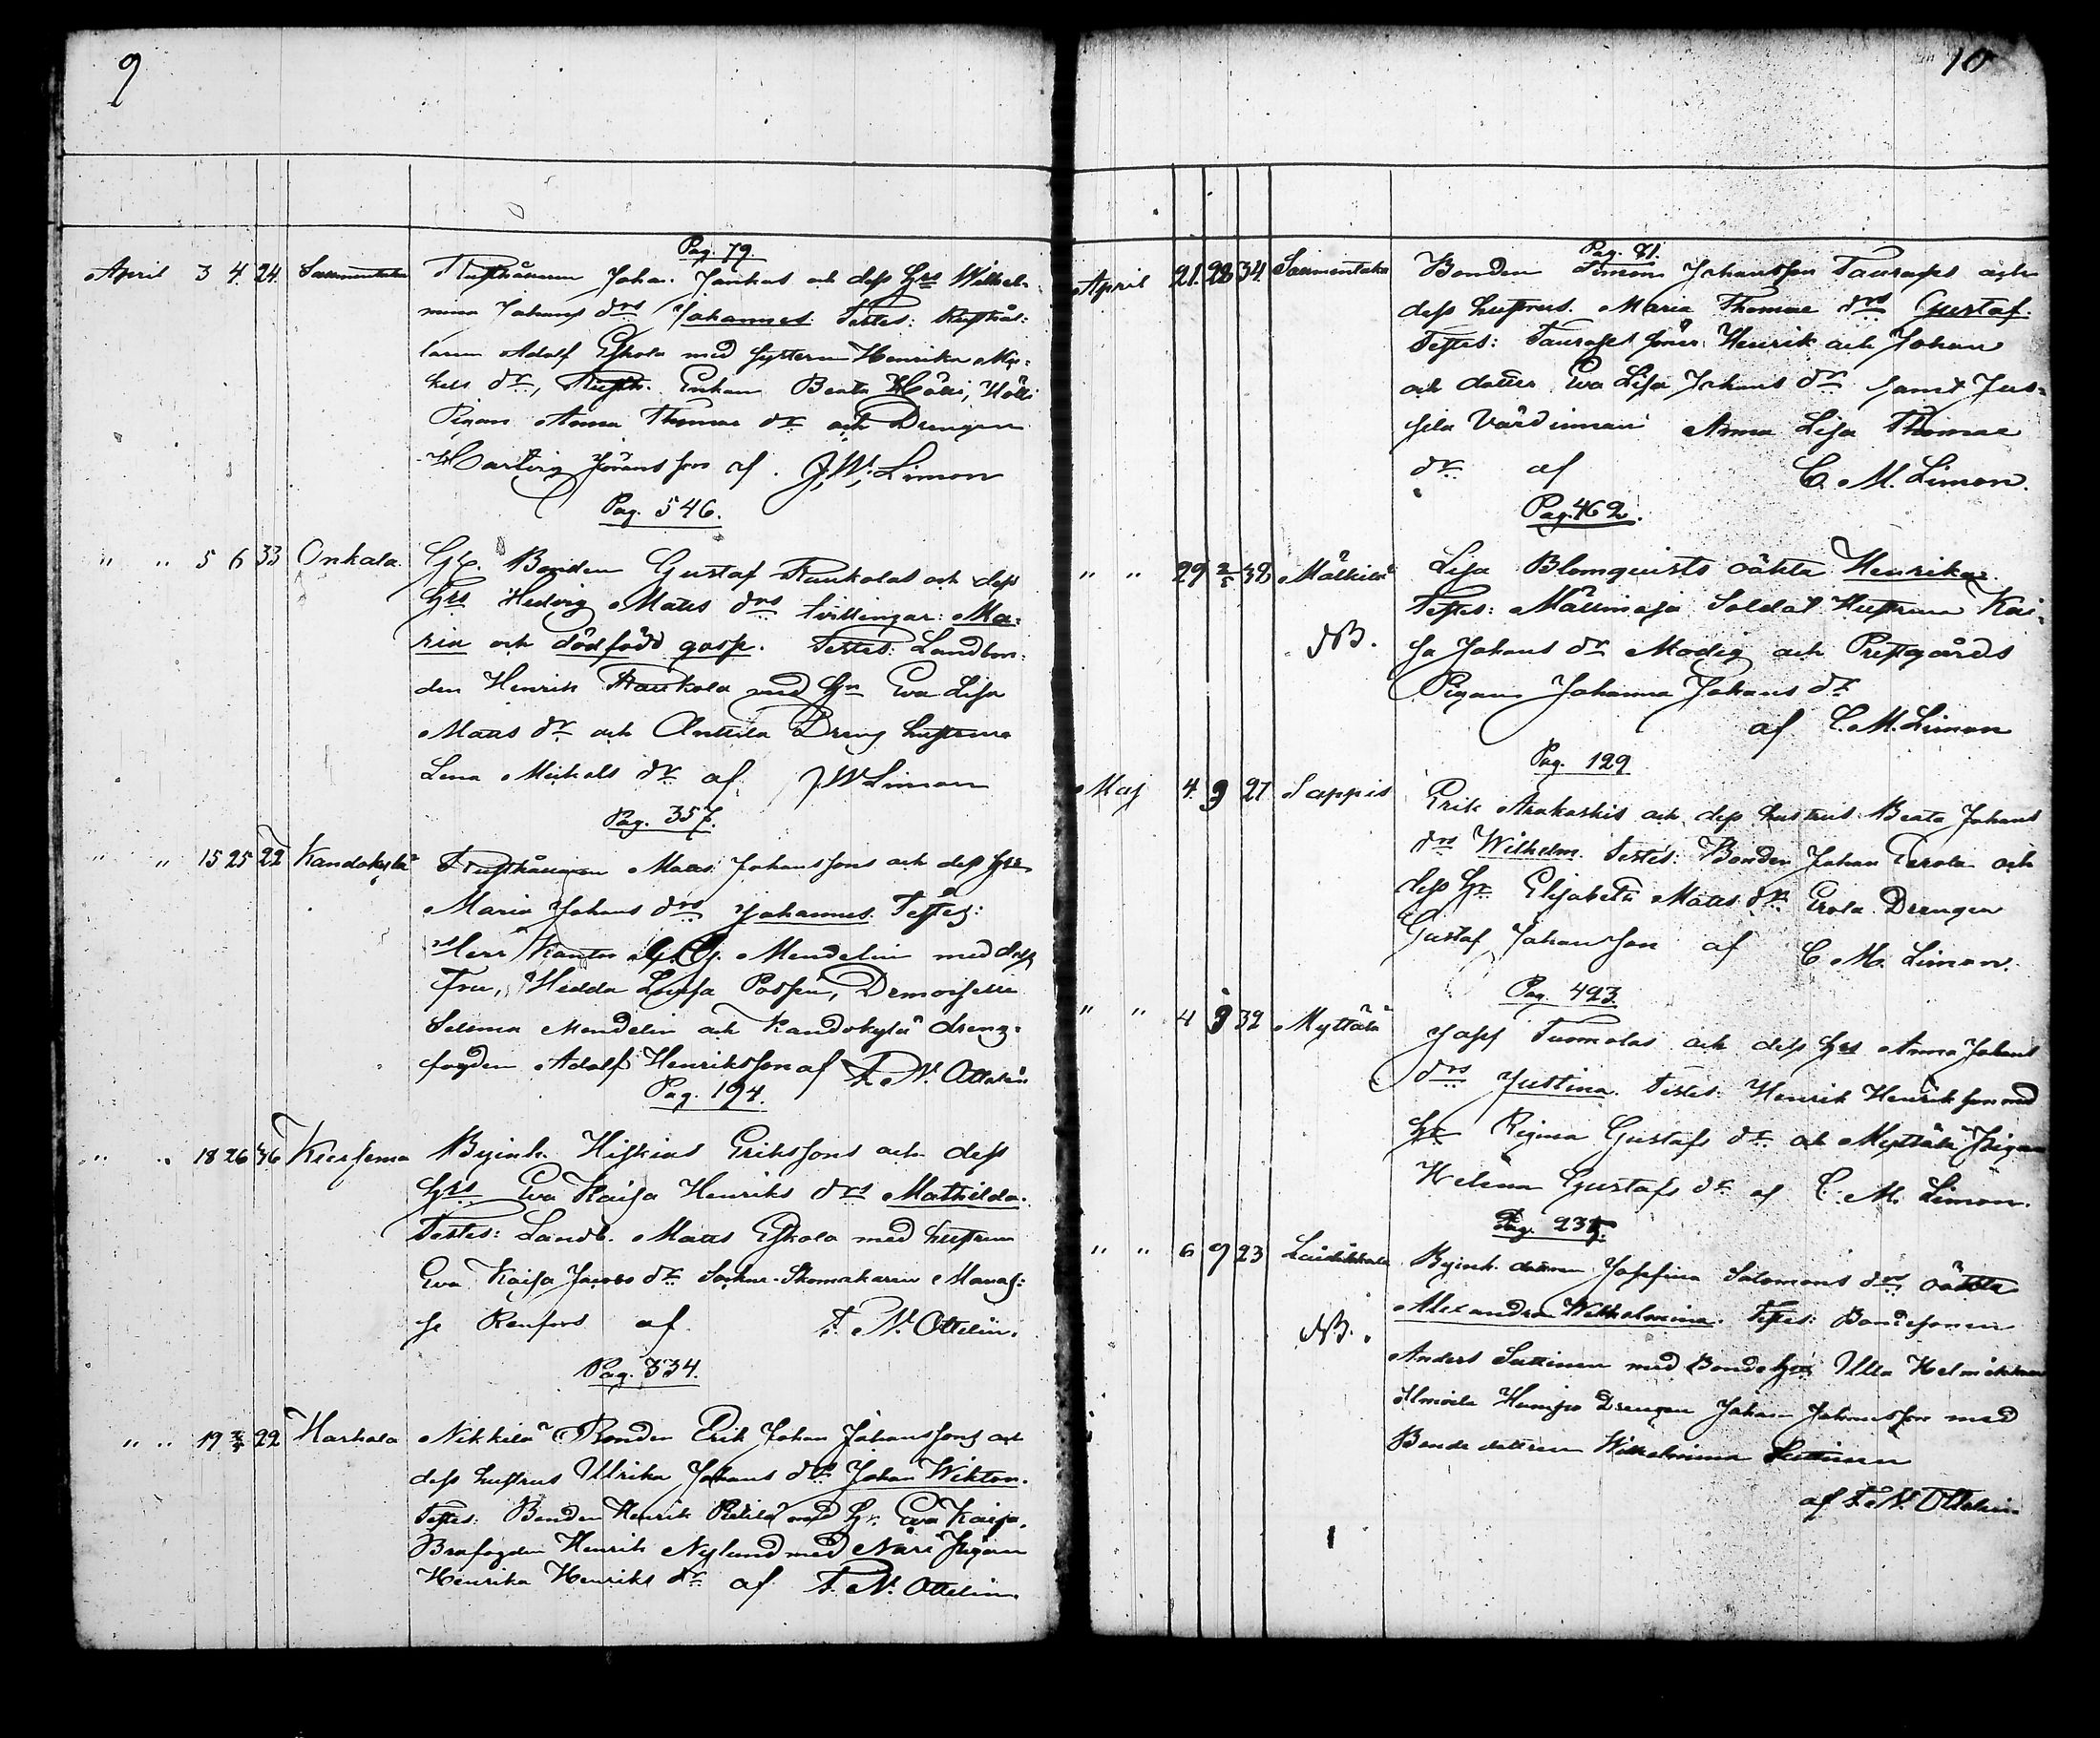 9
Pag. 79.
April 3 4. 24. Sammentaka Rusthållaren Johan Jankas och dess Hrs Wilhel-
mina Johans drs Johannes. Testes: Rusthål-
laren Adolf Eskola med systern Henrika Mi-
kels dr, Rusth. Enkan Beata Hölli, Hölli
Pigan Anna Thomae dr och Drengen
Hartvig Göransson af. J. W. Limon
Pag. 546.
" " 5 6 33 Onkala. Bonden Gustaf Raukolas och dess
Hrs Hedvig Matts drs tvillingar: Ma-
ria och dödfödd goss. Testes: Landbon-
den Henrik Raukola med Hr Eva Lisa
Matts dr och Anttila Dreng hustrun
Lena Michels dr af J W Limon
Pag. 357.
" " 15 25 22 Kandokylä Rusthållaren Matts Johanssons och dess Hrs
Maria Johans drs Johannes. Testes:
Herr Kantor G. G. Mendelin med dess
Fru, Hedda Lovisa Posse, Demoiselle
Selema Mendelin och Kandokylä dreng-
fogden Adolf Henriksson af F. N. Ottelin
Pag. 194.
" " 18 26 46 Kiersema Byinh. Hiskias Erikssons och dess
Hrs Eva Kaisa Henriks drs Mathilda.
Testes: Landb. Matts Eskola med hustrun
Eva Kaisa Jacobs dr Sockne-Skomakaren Manas-
se Renfors af F. N. Ottelin.
Pag. 334.
" " 19 3/5 22 Harkala Nikkilä Bonden Erik Johan Johanssons och
dess hustrus Ulrika Johans drs Johan Wiktor.
Testes: Bonden Henrik Rekilä med Hr. Eva Kaisa,
Brofogden Henrik Nylund med Näri Pigan
Henrika Henriks dr af F. N. Ottelin
10
Pag. 81.
April 21. 28 34. Sammentaka Bonden Simon Johansson Taurases och
dess hustrus Maria Thomae drs Gustaf.
Testes: Tauraset söner Henrik och Johan
och dotter Eva Lisa Johans dr samt Jus-
sila Värdinnan Anna Lisa Thomae
dr af C. M. Limon.
Pag. 462.
" " 29 2/5 32 Mälkilä Lisa Blomquists oäkta Henrika.
Testes: Mällinaja Soldat Hustrun Kai-
NB. sa Johans dr Modig och Prestgårds
Pigan Johanna Johans dr
af C. M. Limon
Pag. 129
Maj 4. 9 27 Sappis Erik Arakoskis och dess hustrus Beata Johans
drs Wilhelm. Testes: Bonden Johan Eerola och
dess Hr Elisabeth Matts dr Erola Drengen
Gustaf Johansson af C. M. Limon.
Pag. 493.
" " 4 9 32 Myttälä Josef Tuomolas och dess Hrs Anna Johans
drs Justina. Testes: Henrik Henriksson med
Hr Regina Gustafs dr och Myttälä Pigan
Helena Gustafs dr af C. M. Limon.
Pag. 235.
" " 6 9 23 Laidikkala Byinh. dottren Josefina Salomons drs oäkta
Alexandra Wilhelmina. Testes: Bondesonen
NB. Anders Suttinen med Bonde Hr Ulla Helmikkinen
Ilmoila Huniju Drengen Johan Johansson med
Bonde dottren Wilhelmina Suttinen
af F. N. Ottelin.